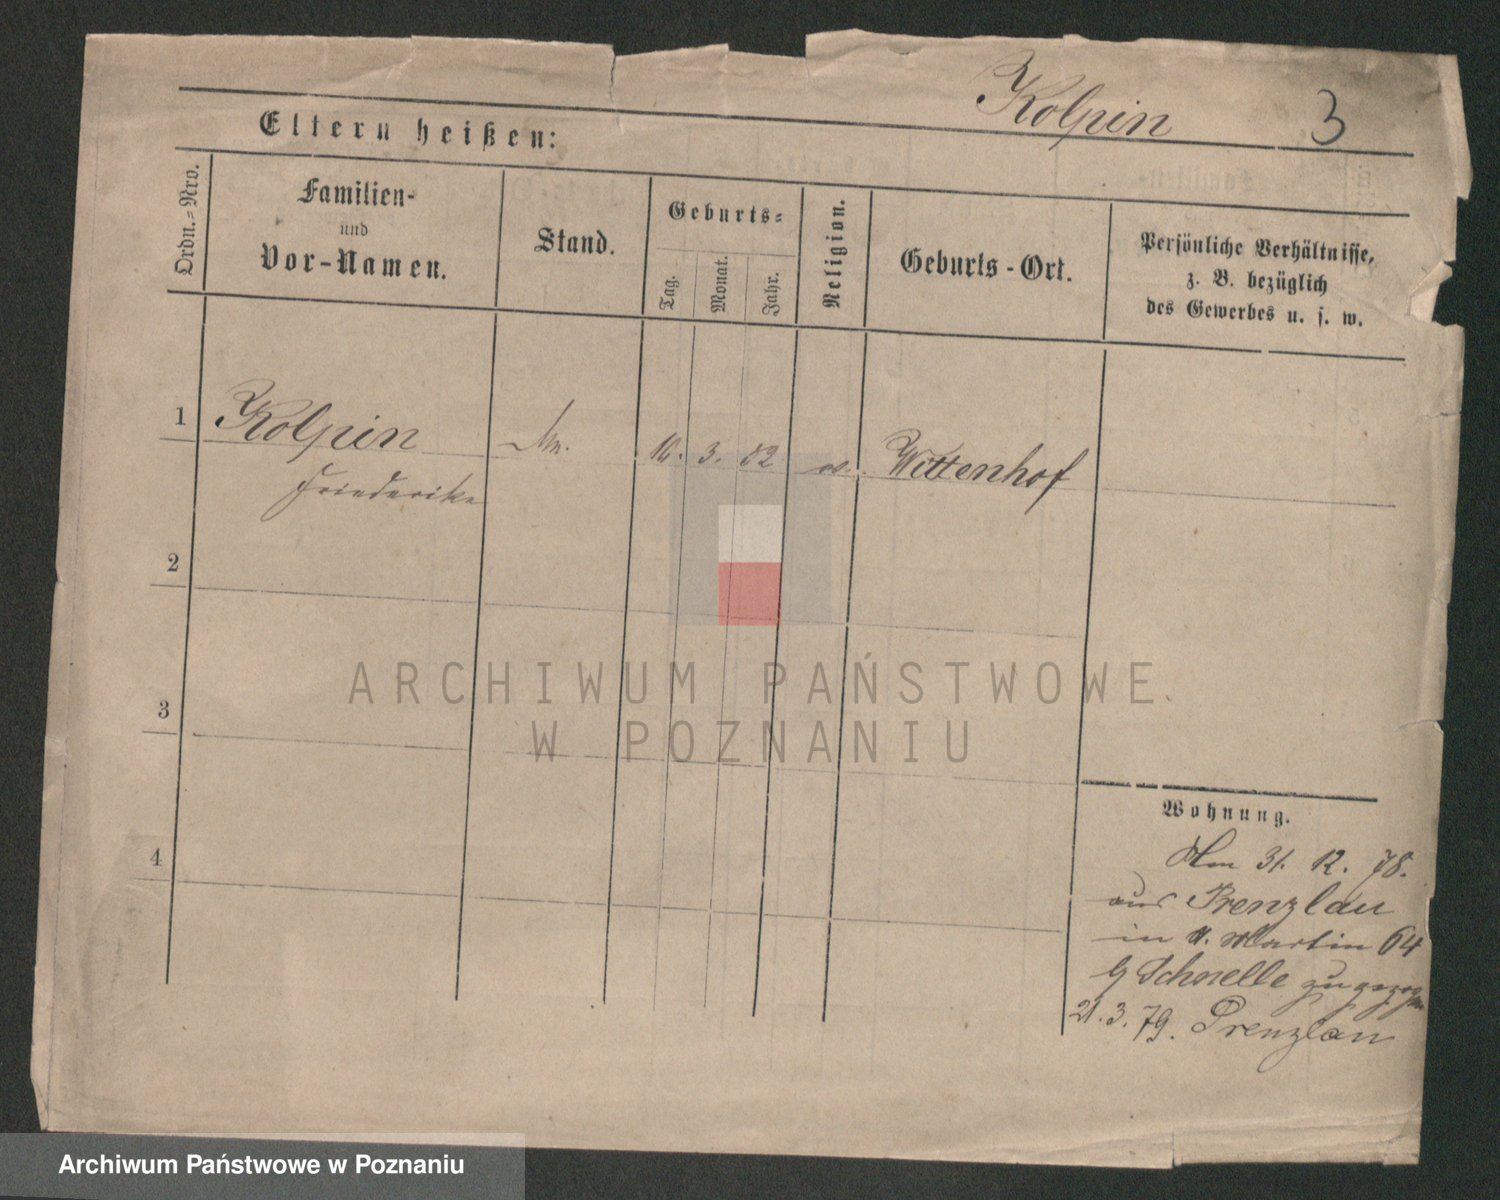 Kolpin 3
Eltern heißen:
Ordn.=Nro.
Familien-
und
Vor-Namen.
Stand.
Geburts=
Tag.
Monat.
Jahr.
Religion.
Geburts-Ort.
Persönliche Verhältnisse,
z. B. bezüglich
des Gewerbes u. s. w.
1 Kolpin 3. 52 Wittenhof
Friederike
2
3
4
ARCHIWUM PAŃSTWOWE
W POZNANIU
Wohnung.
Am 31. 12. 78.
aus Prenzlau
in St. Martin 64
Schnelle zugezogen
21. 3. 79. Prenzlau
Archiwum Państwowe w Poznaniu